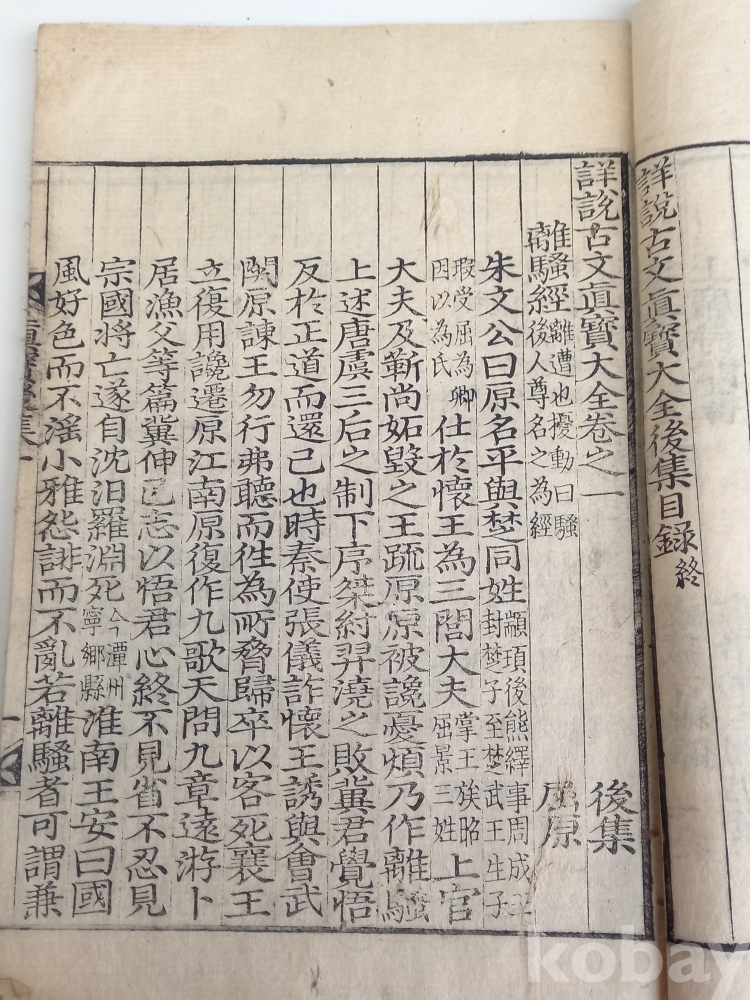 詳說古文眞寶大全後集目錄終
詳說古文眞寶大全卷之一 後集
離騷經 離遭也擾動曰騷後人尊名之為經 屈原
朱文公曰原名平與楚同姓 顓頊後熊繹事周成王封楚子至楚武王生子
瑕受屈為卿因以為氏 仕於懷王為三閭大夫 掌王族昭屈景三姓 上官
大夫及靳尚妬毀之王疏原原被讒憂煩乃作離騷
上述唐虞三后之制下序桀紂羿澆之敗冀君覺悟
反於正道而還己也時秦使張儀詐懷王誘與會武
関原諫王勿行弗聽而徃為所脅歸卒以客死襄王
立復用讒遷原江南原復作九歌天問九章遠游卜
居漁父等篇冀伸己志以悟君心終不見省不忍見
宗國將亡遂自沈汨羅淵死 今潭州寧鄉縣 淮南王安曰國
風好色而不滛小雅怨誹而不亂若離騷者可謂兼
眞寶後集一
一
kobay